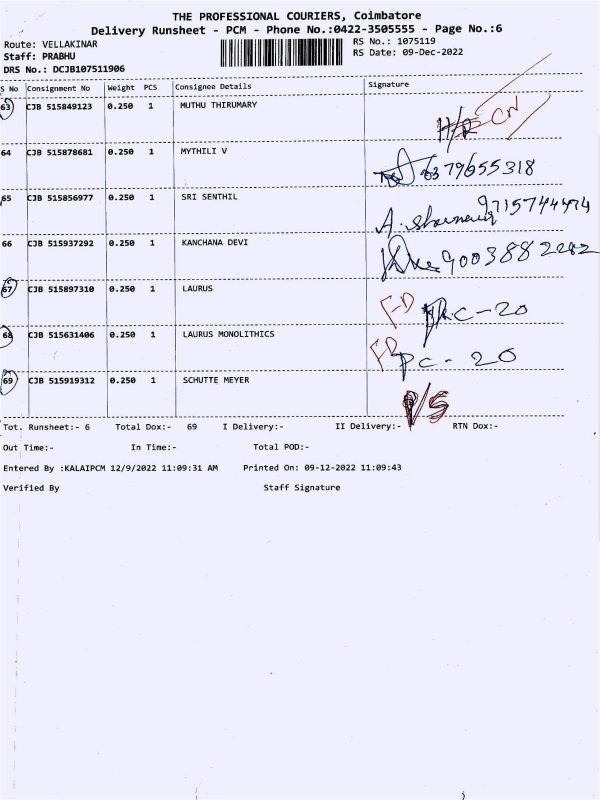 THE PROFESSIONAL COURIERS, Coimbatore
Delivery Runsheet - PCM - Phone No.:0422-3505555 - Page No.:6
Route: VELLAKINAR RS No.: 1075119
Staff: PRABHU RS Date: 09-Dec-2022
DRS No.: DCJB107511906
S No Consignment No Weight PCS Consignee Details Signature
63 CJB 515849123 0.250 1 MUTHU THIRUMARY CN
64 CJB 515878681 0.250 1 MYTHILI V 6379655318
65 CJB 515856977 0.250 1 SRI SENTHIL A. 9715744474
66 CJB 515937292 0.250 1 KANCHANA DEVI 9003882282
67 CJB 515897310 0.250 1 LAURUS FD PC-20
68 CJB 515631406 0.250 1 LAURUS MONOLITHICS FD PC - 20
69 CJB 515919312 0.250 1 SCHUTTE MEYER P/S
Tot. Runsheet:- 6 Total Dox:- 69 I Delivery:- II Delivery:- RTN Dox:-
Out Time:- In Time:- Total POD:-
Entered By :KALAIPCM 12/9/2022 11:09:31 AM Printed On: 09-12-2022 11:09:43
Verified By Staff Signature